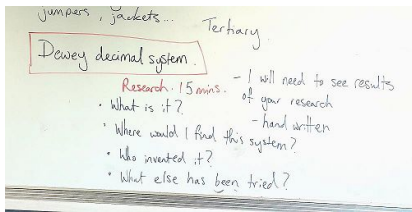 jumpers, jackets...
Tertiary.
Dewey decimal system.
Research. 15 mins.
- I will need to see results
of your research
- hand written
• What is it?
• Where would I find this system?
• Who invented it?
• What else has been tried?